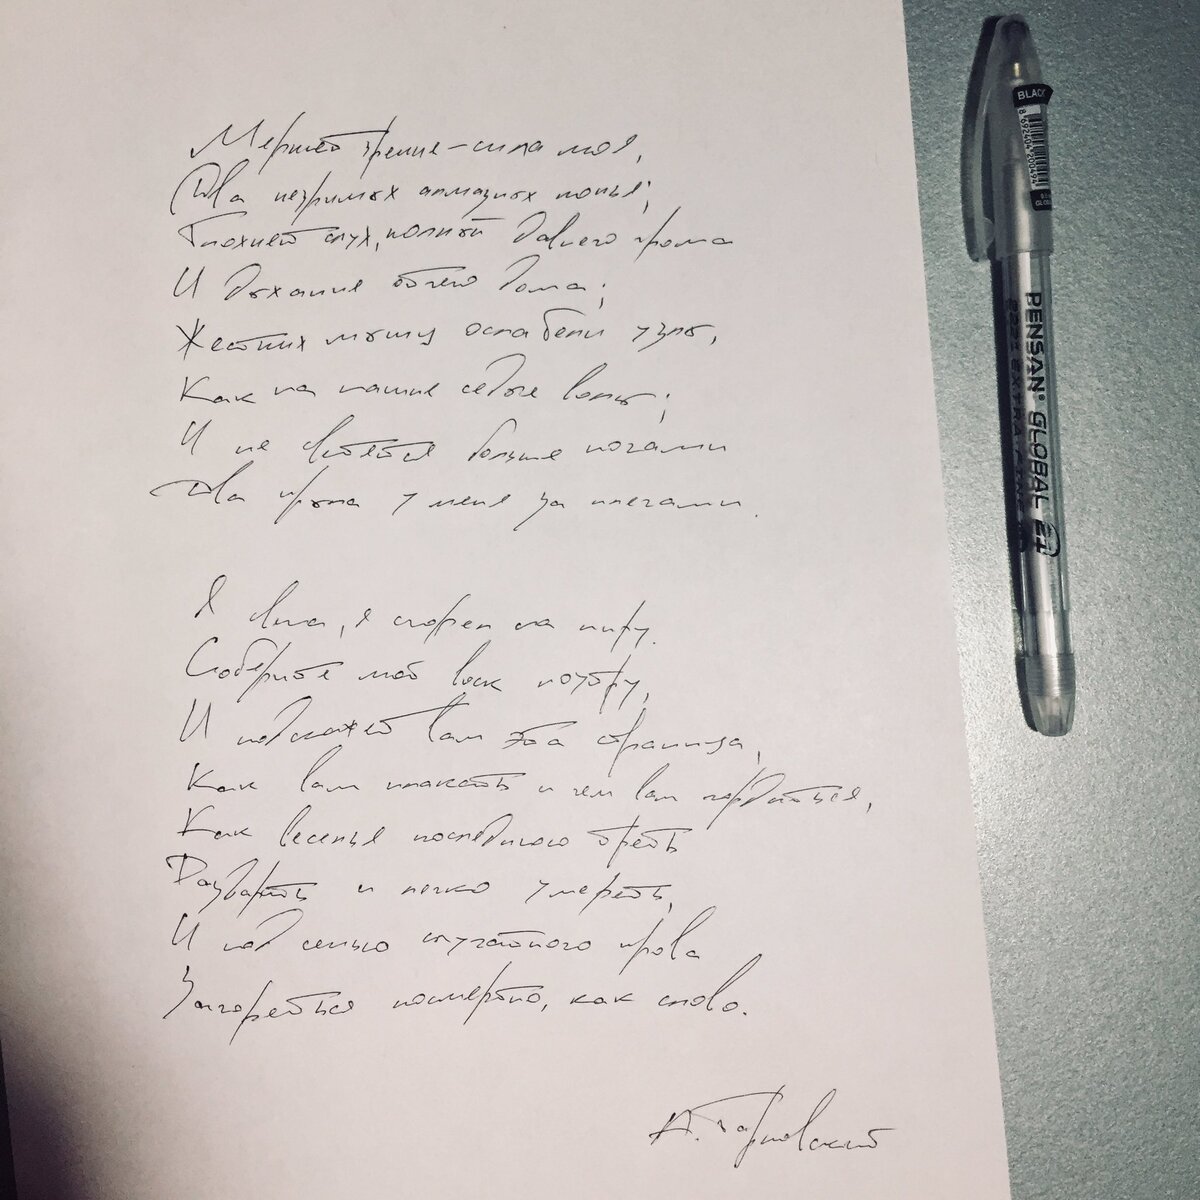 Меркнет зрение – сила моя,
Два незримых алмазных копья;
Глохнет слух, полный давнего грома
И дыхания отчего дома;
Жестких мышц ослабели узлы,
Как на пашне седые волы;
И не светятся больше ночами
Два крыла у меня за плечами.
Я свеча, я сгорел на пиру.
Соберите мой воск поутру,
И подскажет вам эта страница,
Как вам плакать и чем вам гордиться,
Как веселья последнюю треть
Раздарить и легко умереть,
И под сенью случайного крова
Загореться посмертно, как слово.
А. Тарковский
BLACK
8 692404 200494
PENSAN® GLOBAL 21
2221 EXTRA FINE